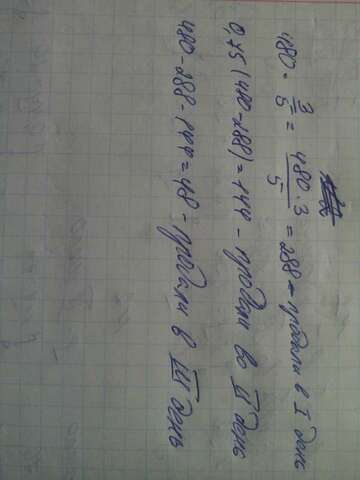 480 · 3/5 = 480 · 3/5 = 288 – продали в I день
0,75 (480-288) = 144 – продали во II день
480 - 288 - 144 = 48 - продали в III день